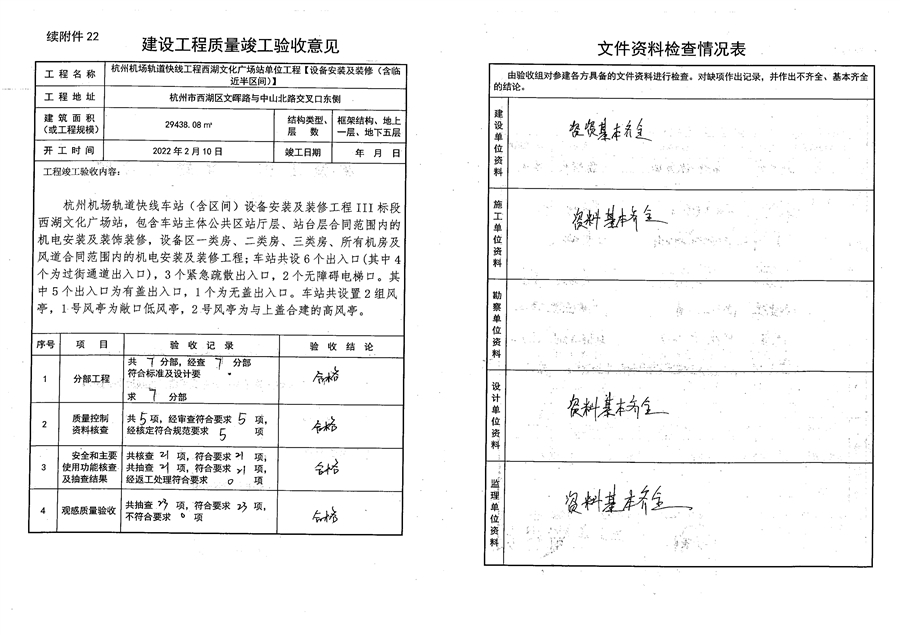 续附件 22
建设工程质量竣工验收意见
工程名称 杭州机场轨道快线工程西湖文化广场站单位工程【设备安装及装修（含临
近半区间）】
工程地址 杭州市西湖区文晖路与中山北路交叉口东侧
建筑面积
（或工程规模） 29438.08㎡ 结构类型、
层数 框架结构、地上
一层、地下五层
开工时间 2022年2月10日 竣工日期 年 月 日
工程竣工验收内容：
杭州机场轨道快线车站（含区间）设备安装及装修工程 III 标段
西湖文化广场站，包含车站主体公共区站厅层、站台层合同范围内的
机电安装及装饰装修，设备区一类房、二类房、三类房、所有机房及
风道合同范围内的机电安装及装修工程；车站共设6个出入口（其中4
个为过街通道出入口），3个紧急疏散出入口，2个无障碍电梯口。其
中5个出入口为有盖出入口，1个为无盖出入口。车站共设置2组风
亭，1号风亭为敞口低风亭，2号风亭为与上盖合建的高风亭。
序号 项目 验收记录 验收结论
1 分部工程 共 7 分部，经查 7 分部
符合标准及设计要
求 7 分部 合格
2 质量控制
资料核查 共5项，经审查符合要求 5 项，
经核定符合规范要求 5 项 合格
3 安全和主要
使用功能核查
及抽查结果 共核查 21 项，符合要求 21 项，
共抽查 21 项，符合要求 21 项，
经返工处理符合要求 0 项 合格
4 观感质量验收 共抽查 23 项，符合要求 23 项，
不符合要求 0 项 合格
文件资料检查情况表
由验收组对参建各方具备的文件资料进行检查。对缺项作出记录，并作出不齐全、基本齐全
的结论。
建设单位资料 资料基本齐全
施工单位资料 资料基本齐全
勘察单位资料
设计单位资料 资料基本齐全
监理单位资料 资料基本齐全